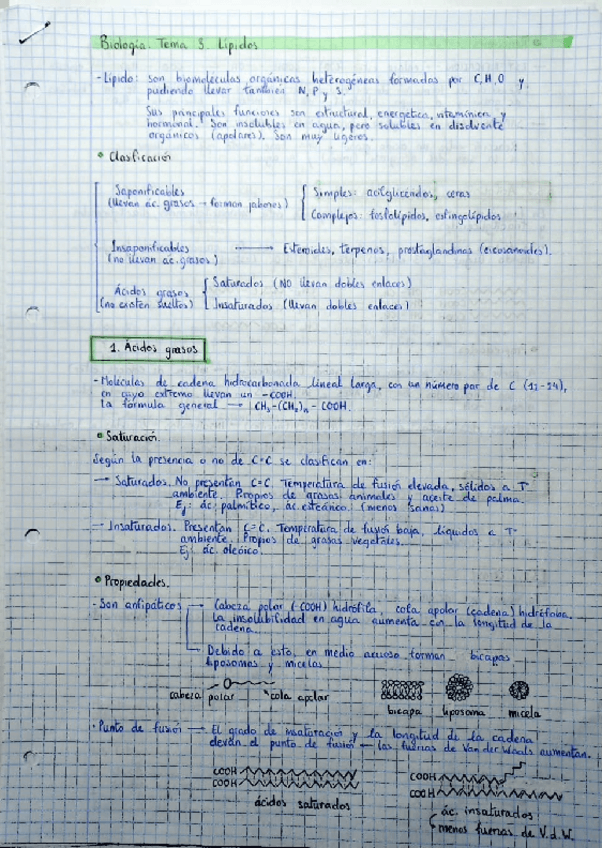 Biología. Tema 3. Lípidos
- Lípido: son biomoléculas orgánicas heterogéneas formadas por C, H, O y
pudiendo llevar también N, P y S.
Sus principales funciones son estructural, energética, vitamínica y
hormonal. Son insolubles en agua, pero solubles en disolvente
orgánicos (apolares). Son muy ligeros.
• Clasificación
Saponificables
(llevan ác. grasos → forman jabones)
Simples: acilglicéridos, ceras
Complejos: fosfolípidos, esfingolípidos
Insaponificables → Esteroides, terpenos, prostaglandinas (eicosanoides).
(no llevan ác. grasos)
Ácidos grasos
(no existen sueltos)
Saturados (NO llevan dobles enlaces)
Insaturados (llevan dobles enlaces)
1. Ácidos grasos
- Moléculas de cadena hidrocarbonada lineal larga, con un número par de C (12-24),
en cuyo extremo llevan un -COOH.
La fórmula general → CH₃-(CH₂)ₙ-COOH.
• Saturación.
Según la presencia o no de C=C se clasifican en:
→ Saturados. No presentan C=C. Temperatura de fusión elevada, sólidos a Tª
ambiente. Propios de grasas animales y aceite de palma.
Ej: ác. palmítico, ác. esteárico. (menos sanas)
→ Insaturados. Presentan C=C. Temperatura de fusión baja, líquidos a Tª
ambiente. Propios de grasas vegetales.
Ej: ác. oleico.
• Propiedades.
- Son antipáticos → Cabeza polar (-COOH) hidrófila, cola apolar (cadena) hidrófoba.
La insolubilidad en agua aumenta con la longitud de la
cadena.
→ Debido a esto, en medio acuoso forman bicapas
liposomas y micelas
cabeza polar cola apolar
bicapa liposoma micela
· Punto de fusión → El grado de insaturación y la longitud de la cadena
elevan el punto de fusión ← las fuerzas de Van der Waals aumentan.
COOH
COOH
ácidos saturados
COOH
COOH
ác. insaturados
menos fuerzas de V.d.W.